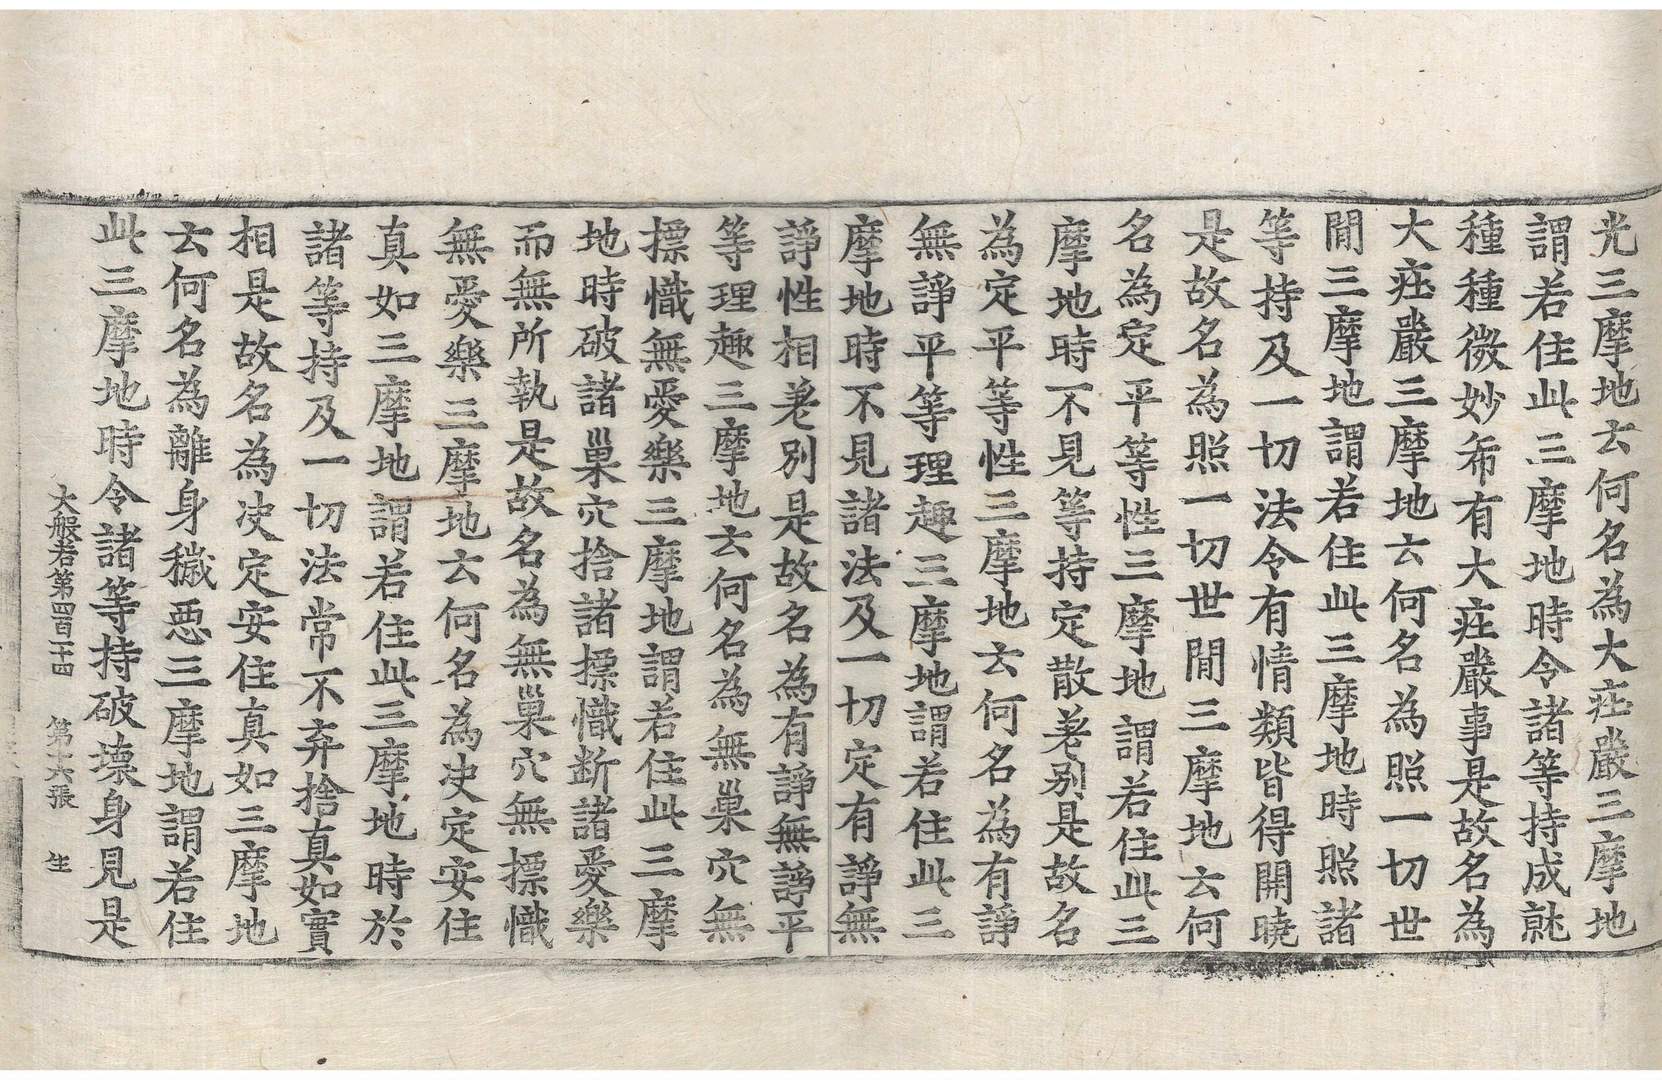 光三摩地云何名為大疘嚴三摩地
謂若住此三摩地時令諸等持成就
種種微妙希有大疘嚴事是故名為
大疘嚴三摩地云何名為照一切世
閒三摩地謂若住此三摩地時照諸
等持及一切法令有情類皆得開曉
是故名為照一切世閒三摩地云何
名為定平等性三摩地謂若住此三
摩地時不見等持定散差別是故名
為定平等性三摩地云何名為有諍
無諍平等理趣三摩地謂若住此三
摩地時不見諸法及一切定有諍無
諍性相差別是故名為有諍無諍平
等理趣三摩地云何名為無巢穴無
摽幟無愛樂三摩地謂若住此三摩
地時破諸巢穴捨諸摽幟斷諸愛樂
而無所執是故名為無巢穴無摽幟
無愛樂三摩地云何名為决定安住
真如三摩地謂若住此三摩地時於
諸等持及一切法常不弃捨真如實
相是故名為决定安住真如三摩地
云何名為離身穢惡三摩地謂若住
此三摩地時令諸等持破壞身見是
大般若第四百一十四 第六張 生